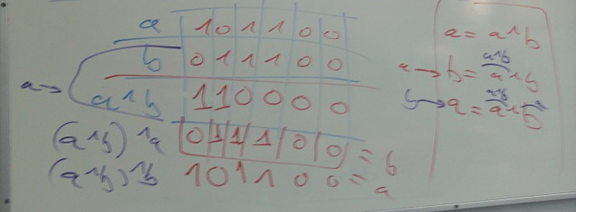 a 1 0 1 1 0 0
b 0 1 1 1 0 0
a→ a^b 1 1 0 0 0 0
(a^b)^a 0 1 1 1 0 0 = b
(a^b)^b 1 0 1 1 0 0 = a
a = a^b
a→ b = a^b a^b
b→ a = a^b a^b